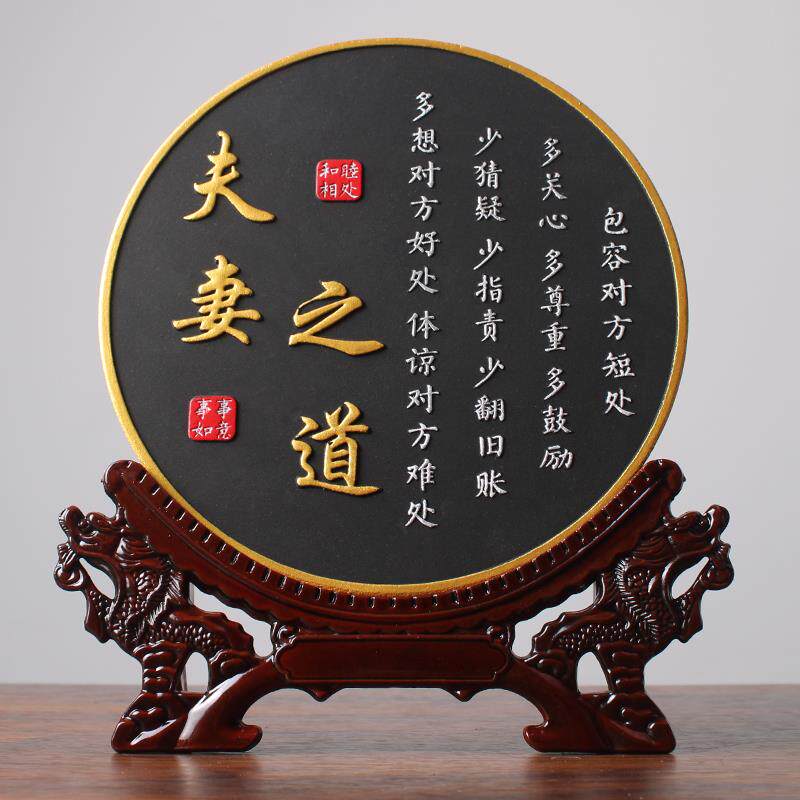 夫妻
之道
和睦
相处
事事
如意
多想对方好处 体谅对方难处
少猜疑 少指责 少翻旧账
多关心 多尊重 多鼓励
包容对方短处